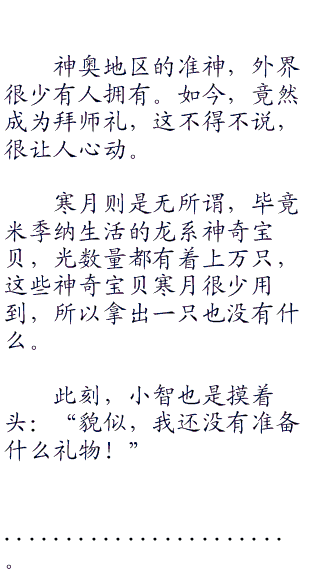 神奥地区的准神，外界
很少有人拥有。如今，竟然
成为拜师礼，这不得不说，
很让人心动。
寒月则是无所谓，毕竟
米季纳生活的龙系神奇宝
贝，光数量都有着上万只，
这些神奇宝贝寒月很少用
到，所以拿出一只也没有什
么。
此刻，小智也是摸着
头：“貌似，我还没有准备
什么礼物！”
.......................
。